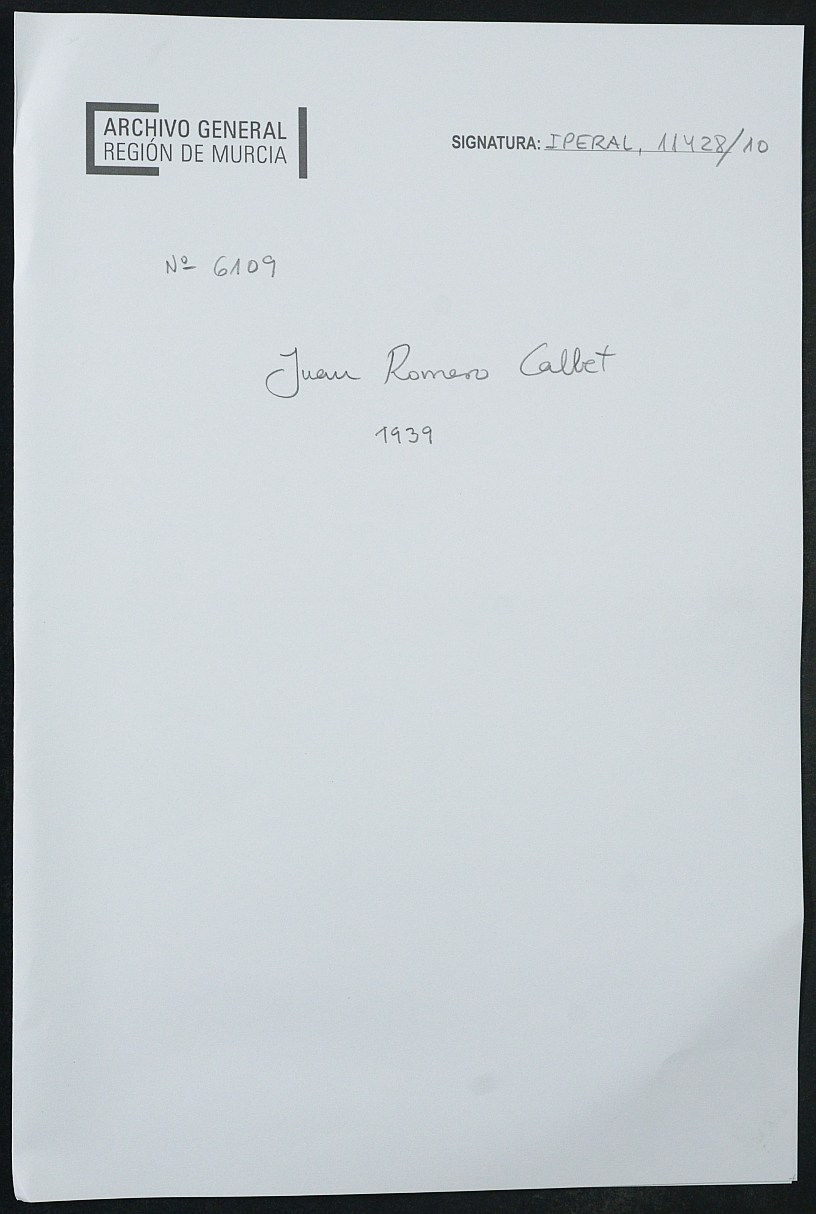 ARCHIVO GENERAL
REGIÓN DE MURCIA
SIGNATURA: IPERAL, 11428/10
Nº 6109
Juan Romero Calbet
1939